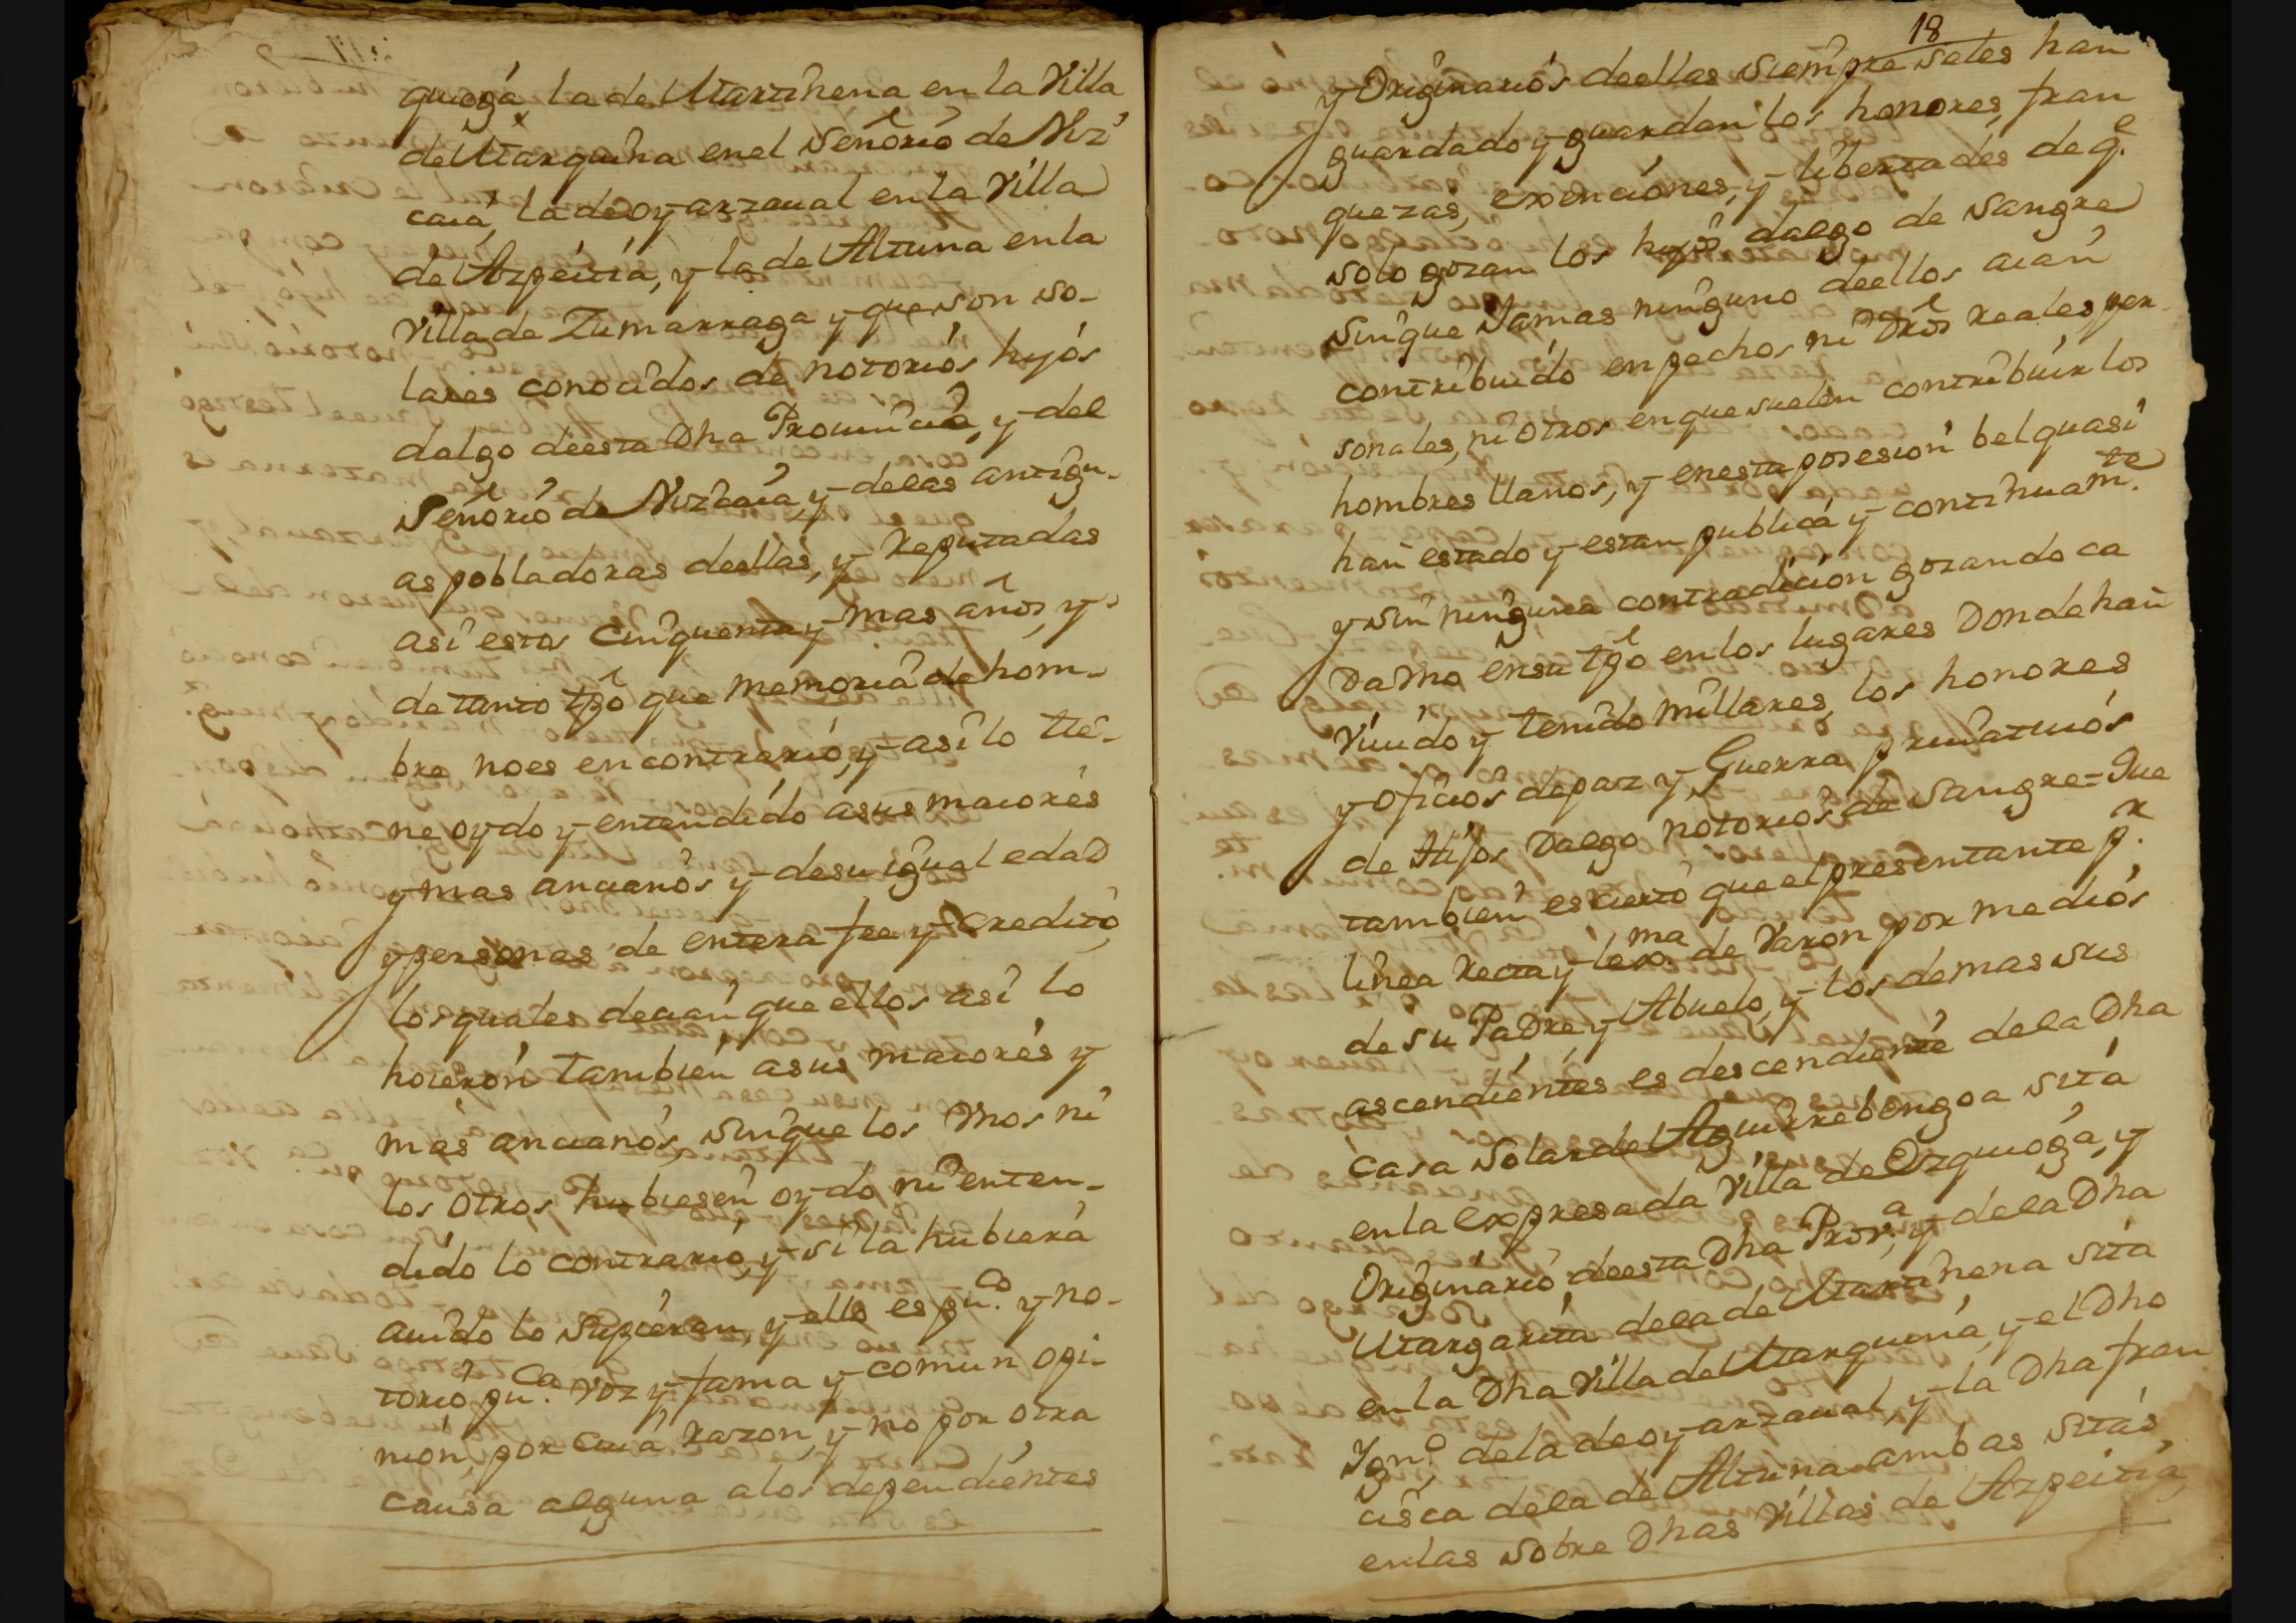 quioga la de Martihena en la Villa
de Marquina en el Señorio de Viz
caia, la de oyarzaual en la Villa
de Azpeitia, y la de Altuna en la
Villa de Zumarraga y que son so-
lares conocidos de notorios hijos
dalgo de esta Dha Prouincia, y del
Señorio de Vizcaia, y de las antigu-
as pobladoras de ellas, y Reputadas
asi estos Cinquenta y mas años, y
de tanto tpo que memoria de hom-
bre no es en contrario, y asi lo tie-
ne oydo y entendido a sus maiores
y mas ancianos y de su igual edad
y personas de entera fee y Credito,
los quales decian que ellos asi lo
hoieron tambien a sus maiores y
mas ancianos, sin que los Vnos ni
los otros hubiesen oydo ni enten-
dido lo contrario, y si la hubiera
auido lo Supieran, y ello es pu.co y no-
torio pu.ca voz y fama y comun opi-
nion, por cuia razon, y no por otra
causa alguna a los dependientes
18
y Originarios de ellas siempre seles han
guardado y guardan los honores, fran
quezas, exenciones, y libertades de q.e
solo gozan los hijos dalgo de Sangre
sin que Jamas ninguno de ellos aian
contribuido en pechos ni Dros Reales, per-
sonales, ni otros en que suelen contribuir los
hombres llanos, y en esta posesion bel quasi
han estado y estan publica y continuam.te
y sin ninguna contradicion gozando ca
Da Vno en su tpo en los lugares Donde han
Viuido y tenido millares, los honores
y oficios de paz y Guerra priuatiuos
de Hijos Dalgo notorios de Sangre = Que
tambien es cierto que el presentante p.r
linea Recta y lex.ma de Varon por medios
de su Padre, y Abuelo, y los demas sus
ascendientes es descendiente de la Dha
Casa Solar de Aguirrebengoa sita
en la Expresada Villa de Ezquioga, y
Originario de esta Dha Prov.a, y de la Dha
Margarita de la de Martihena sita
en la Dha Villa de Marquina, y el Dho
Ygn.o de la de oyarzaual, y la Dha fran
cisca de la de Altuna ambas sitas
en las sobre Dhas Villas de Azpeitia